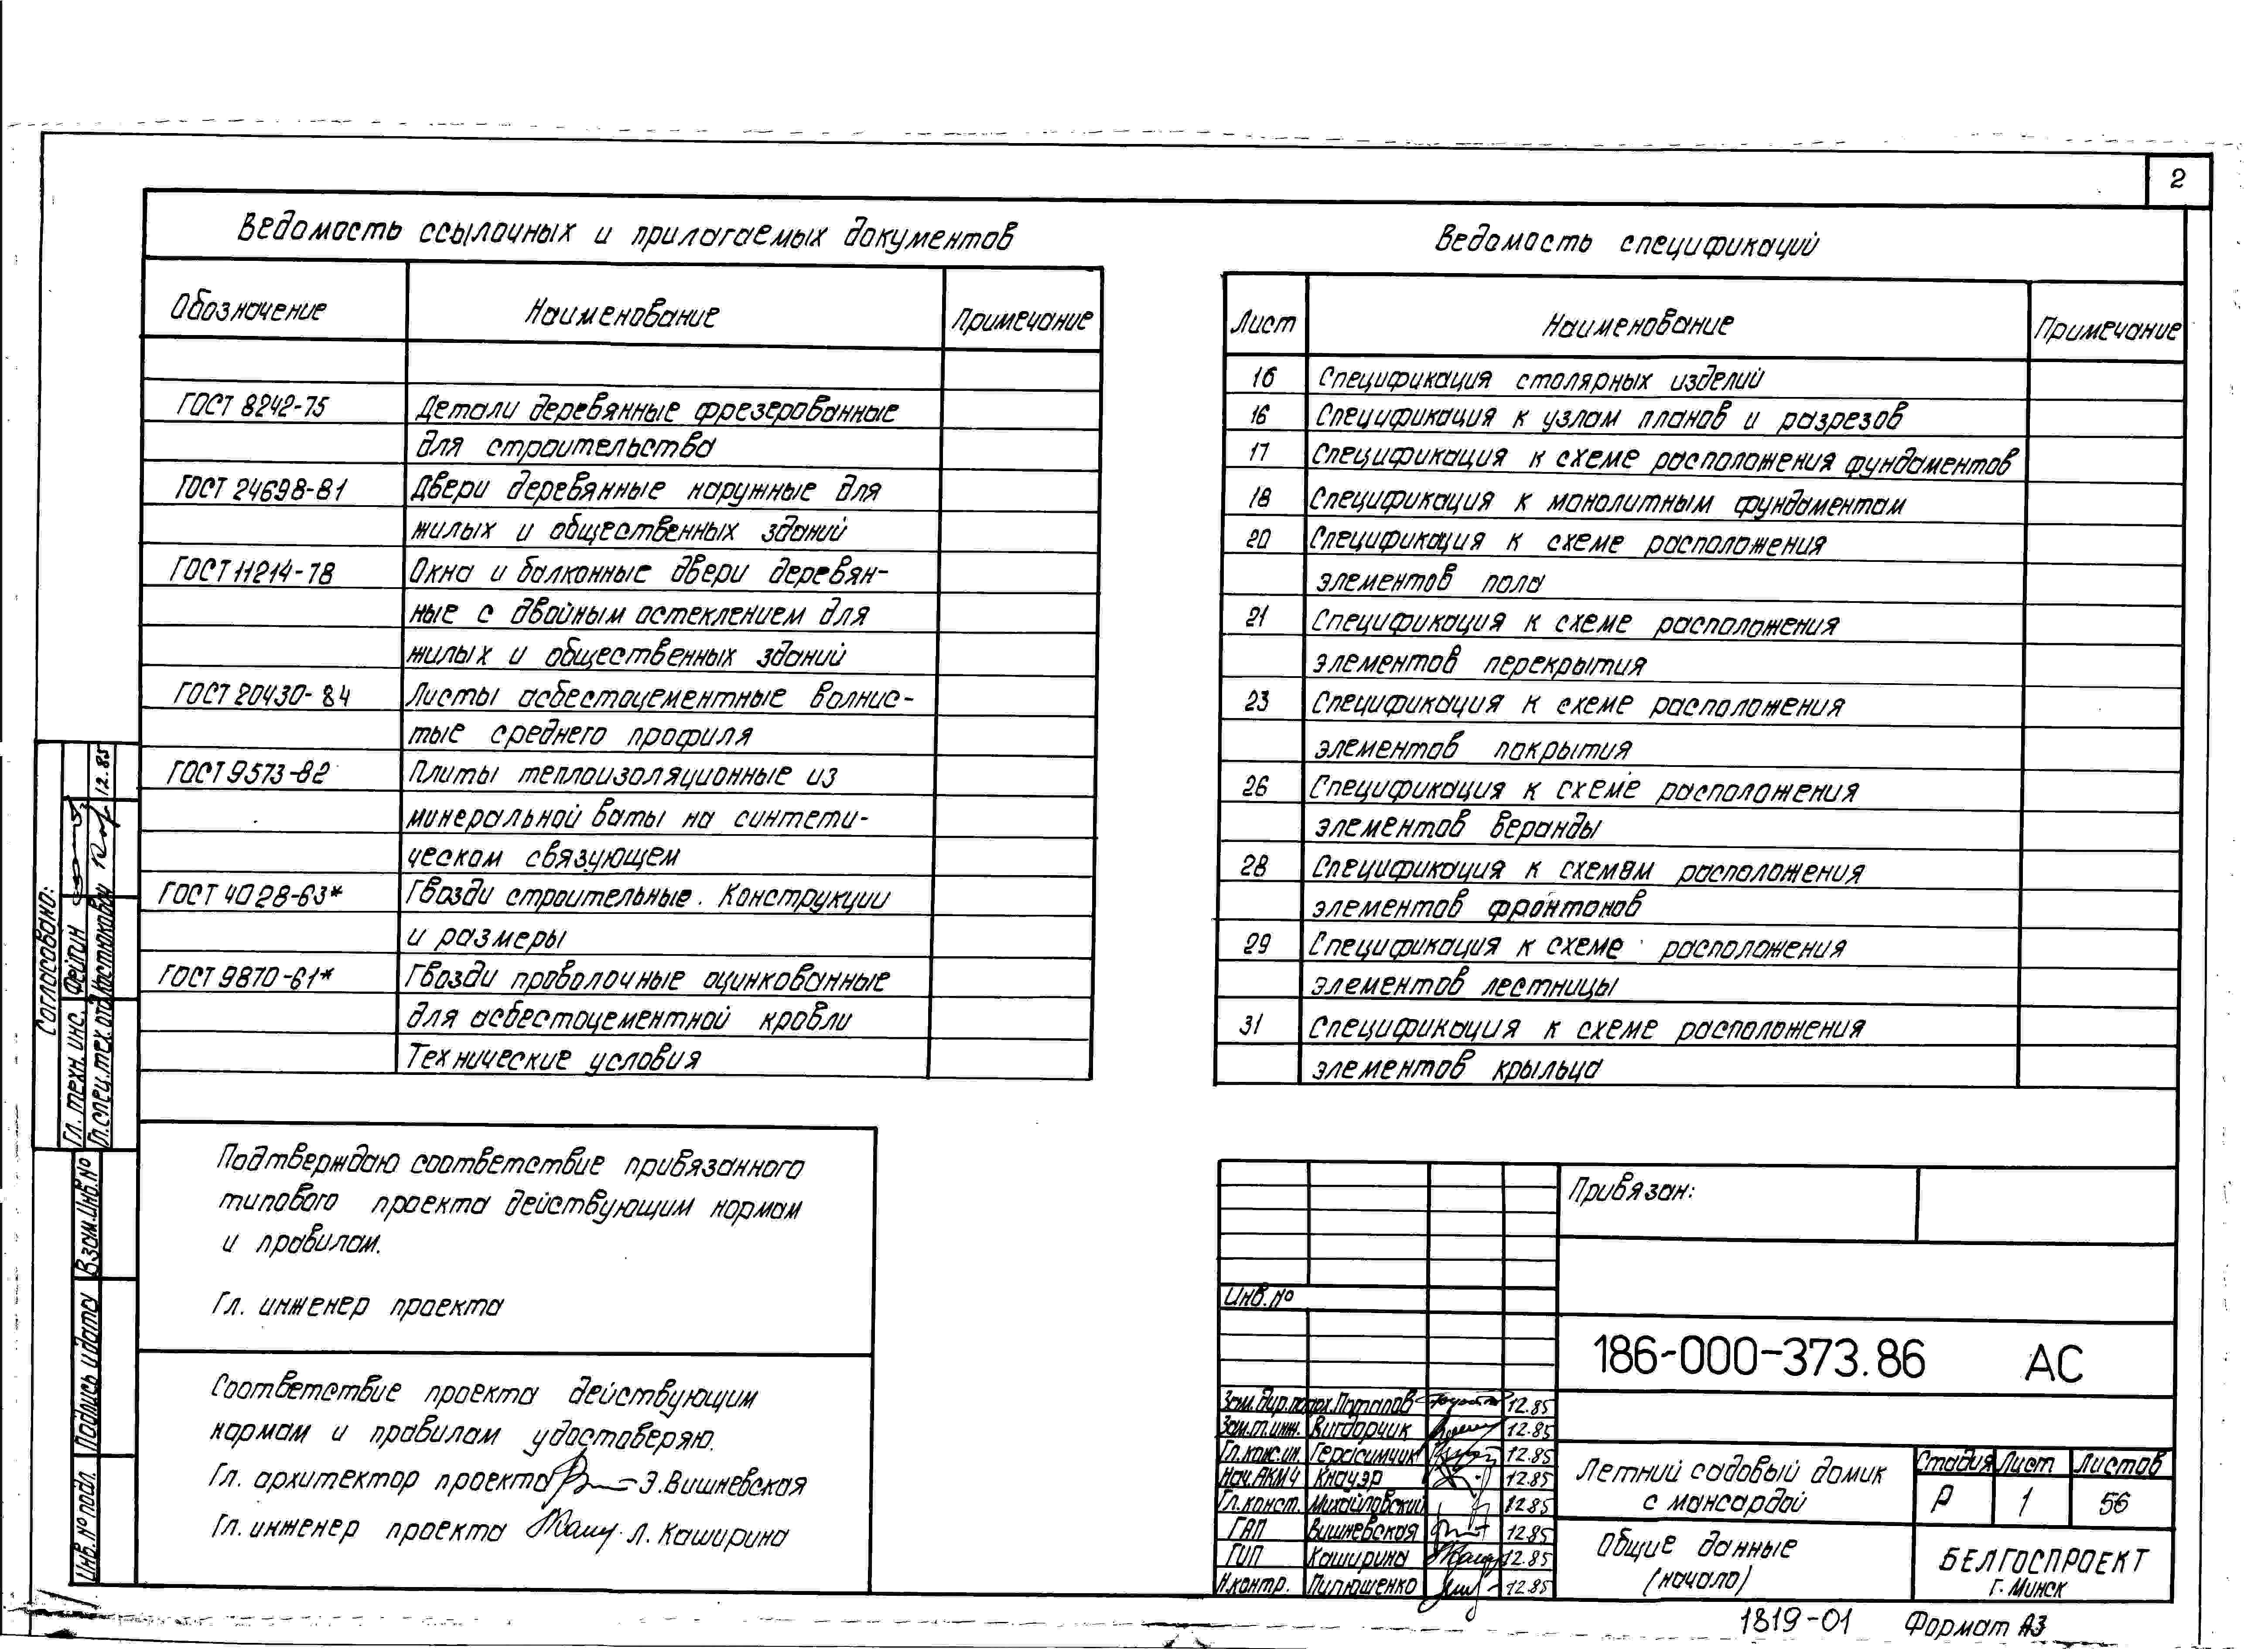 2
Ведомость ссылочных и прилагаемых документов
Обозначение Наименование Примечание
ГОСТ 8242-75 Детали деревянные фрезерованные
для строительства
ГОСТ 24698-81 Двери деревянные наружные для
жилых и общественных зданий
ГОСТ 11214-78 Окна и балконные двери деревян-
ные с двойным остеклением для
жилых и общественных зданий
ГОСТ 20430-84 Листы асбестоцементные волнис-
тые среднего профиля
ГОСТ 9573-82 Плиты теплоизоляционные из
минеральной ваты на синтети-
ческом связующем
ГОСТ 4028-63* Гвозди строительные. Конструкции
и размеры
ГОСТ 9870-61* Гвозди проволочные оцинкованные
для асбестоцементной кровли
Технические условия
Ведомость спецификаций
Лист Наименование Примечание
16 Спецификация столярных изделий
16 Спецификация к узлам планов и разрезов
17 Спецификация к схеме расположения фундаментов
18 Спецификация к монолитным фундаментам
20 Спецификация к схеме расположения
элементов пола
21 Спецификация к схеме расположения
элементов перекрытия
23 Спецификация к схеме расположения
элементов покрытия
26 Спецификация к схеме расположения
элементов веранды
28 Спецификация к схемам расположения
элементов фронтонов
29 Спецификация к схеме расположения
элементов лестницы
31 Спецификация к схеме расположения
элементов крыльца
Согласовано:
Гл. техн. инс. Фейгин
Гл.спец.тех.отд. Костюкова 12.85
Взам.инв.№
Подпись и дата
Инв.№ подл.
Подтверждаю соответствие привязанного
типового проекта действующим нормам
и правилам.
Гл. инженер проекта
Соответствие проекта действующим
нормам и правилам удостоверяю.
Гл. архитектор проекта Э.Вишневская
Гл. инженер проекта Л. Каширина
Привязан:
Инв.№
186-000-373.86 АС
Зам.дир. Потапов 12.85
Зам.гл.инж. Вигдорчик 12.85
Гл.конс.ин. Герасимчик 12.85
Нач.АКМ4 Кнауэр 12.85
Гл.конст. Михайловский 12.85
ГАП Вишневская 12.85
ГИП Каширина 12.85
Н.контр. Пилюшенко 12.85
Летний садовый домик
с мансардой
Стадия Лист Листов
Р 1 56
Общие данные
(начало)
БЕЛГОСПРОЕКТ
г. Минск
1819-01 Формат А3